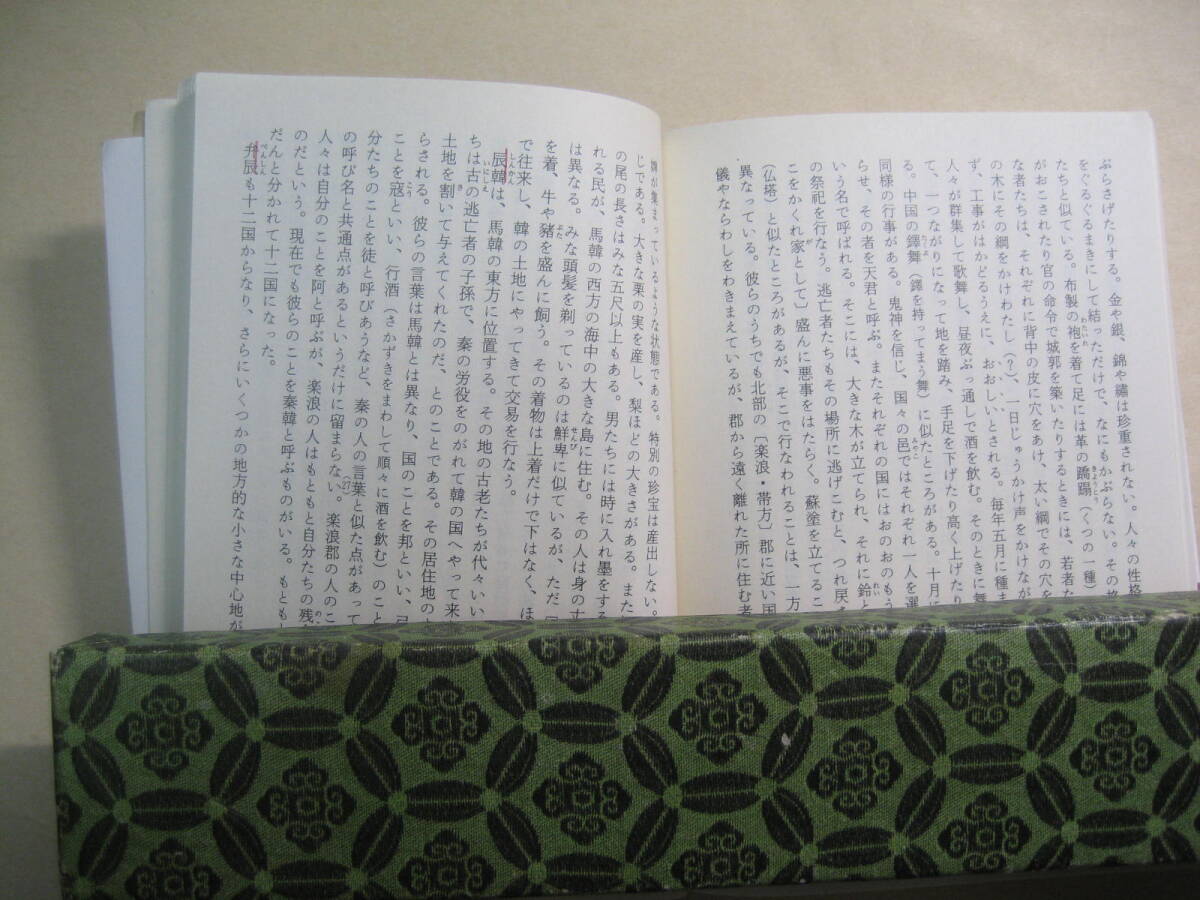 ぶらさげたりする。金や銀、錦や繡は珍重されない。人々の性格
をぐるぐるまきにして結っただけで、なにもかぶらない。その格
たちと似ている。布製の袍を着て足には革の蹻蹋(くつの一種)
がおこされたり官の命令で城郭を築いたりするときには、若者た
な者たちは、それぞれに背中の皮に穴をあけ、太い綱でその穴を
の木にその綱をかけわたし(?)、一日じゅうかけ声をかけなが
ず、工事がはかどるうえに、おおしいとされる。毎年五月に種ま
人々が群集して歌舞し、昼夜ぶっ通しで酒を飲む。そのときに舞
て、一つながりになって地を踏み、手足を下げたり高く上げたり
る。中国の鐸舞(鐸を持ってまう舞)に似たところがある。十月に
同様の行事がある。鬼神を信じ、国々の邑ではそれぞれ一人を選
らせ、その者を天君と呼ぶ。またそれぞれの国にはおのおのもう
いう名で呼ばれる。そこには、大きな木が立てられ、それに鈴と
の祭祀を行なう。逃亡者たちもその場所に逃げこむと、つれ戻さ
こをかくれ家として〕盛んに悪事をはたらく。蘇塗を立てるこ
(仏塔)と似たところがあるが、そこで行なわれることは、一方
異なっている。彼らのうちでも北部の〔楽浪・帯方〕郡に近い国
儀やならわしをわきまえているが、郡から遠く離れた所に住む者
が集まっているような状態である。特別の珍宝は産出しない。
じである。大きな栗の実を産し、梨ほどの大きさがある。また
の尾の長さはみな五尺以上もある。男たちには時に入れ墨をする
れる民が、馬韓の西方の海中の大きな島に住む。その人は身の丈
は異なる。みな頭髪を剃っているのは鮮卑に似ているが、ただ
を着、牛や豬を盛んに飼う。その着物は上着だけで下はなく、ほ
で往来し、韓の土地にやってきて交易を行なう。
辰韓は、馬韓の東方に位置する。その地の古老たちが代々いい
ちは古の逃亡者の子孫で、秦の労役をのがれて韓の国へやって来
土地を割いて与えてくれたのだ、とのことである。その居住地の
らされる。彼らの言葉は馬韓とは異なり、国のことを邦といい、弓
ことを寇といい、行酒(さかずきをまわして順々に酒を飲む)のこと
分たちのことを徒と呼びあうなど、秦の人の言葉と似た点があって
の呼び名と共通点があるというだけに留まらない。(27)楽浪郡の人のこ
人々は自分のことを阿と呼ぶが、楽浪の人はもともと自分たちの残
のだという。現在でも彼らのことを秦韓と呼ぶものがいる。もともと
だんと分かれて十二国になった。
弁辰も十二国からなり、さらにいくつかの地方的な小さな中心地が